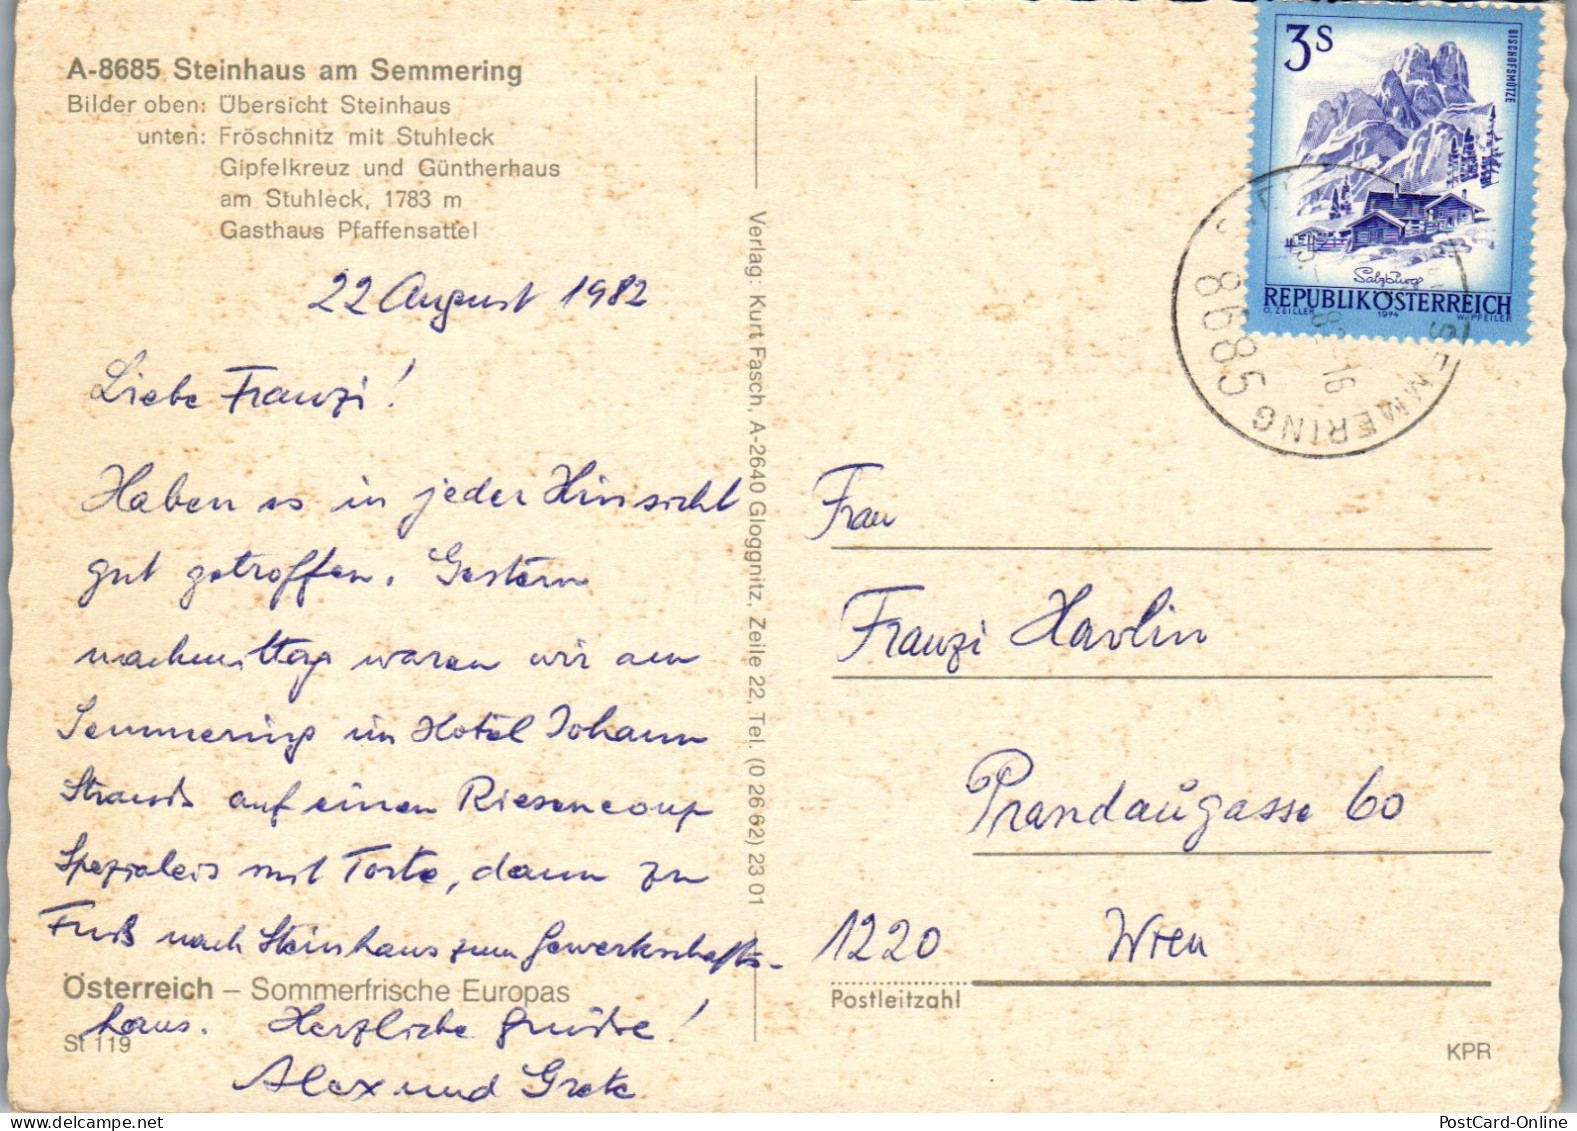 A-8685 Steinhaus am Semmering
Bilder oben: Übersicht Steinhaus
unten: Fröschnitz mit Stuhleck
Gipfelkreuz und Güntherhaus
am Stuhleck, 1783 m
Gasthaus Pfaffensattel
22 August 1982
Liebe Franzi!
Haben es in jeder Hinsicht
gut getroffen. Gestern
nachmittag waren wir am
Semmering im Hotel Johann
Strauß auf einen Riesencoup
Spezialeis mit Torte, dann zu
Fuß nach Steinhaus zum Gewerkschafts-
haus. Herzliche Grüße!
Alex und Grete
Österreich – Sommerfrische Europas
St 119
Verlag: Kurt Fasch, A-2640 Gloggnitz, Zeile 22, Tel. (0 26 62) 23 01
3 S
BISCHOFSMÜTZE
Salzburg
REPUBLIK ÖSTERREICH
O. ZEILLER 1974 W. PFEILER
8685
SEMMERING
-16
Frau
Franzi Havlin
Prandaugasse 60
1220 Wien
Postleitzahl
KPR
PostCard-Online